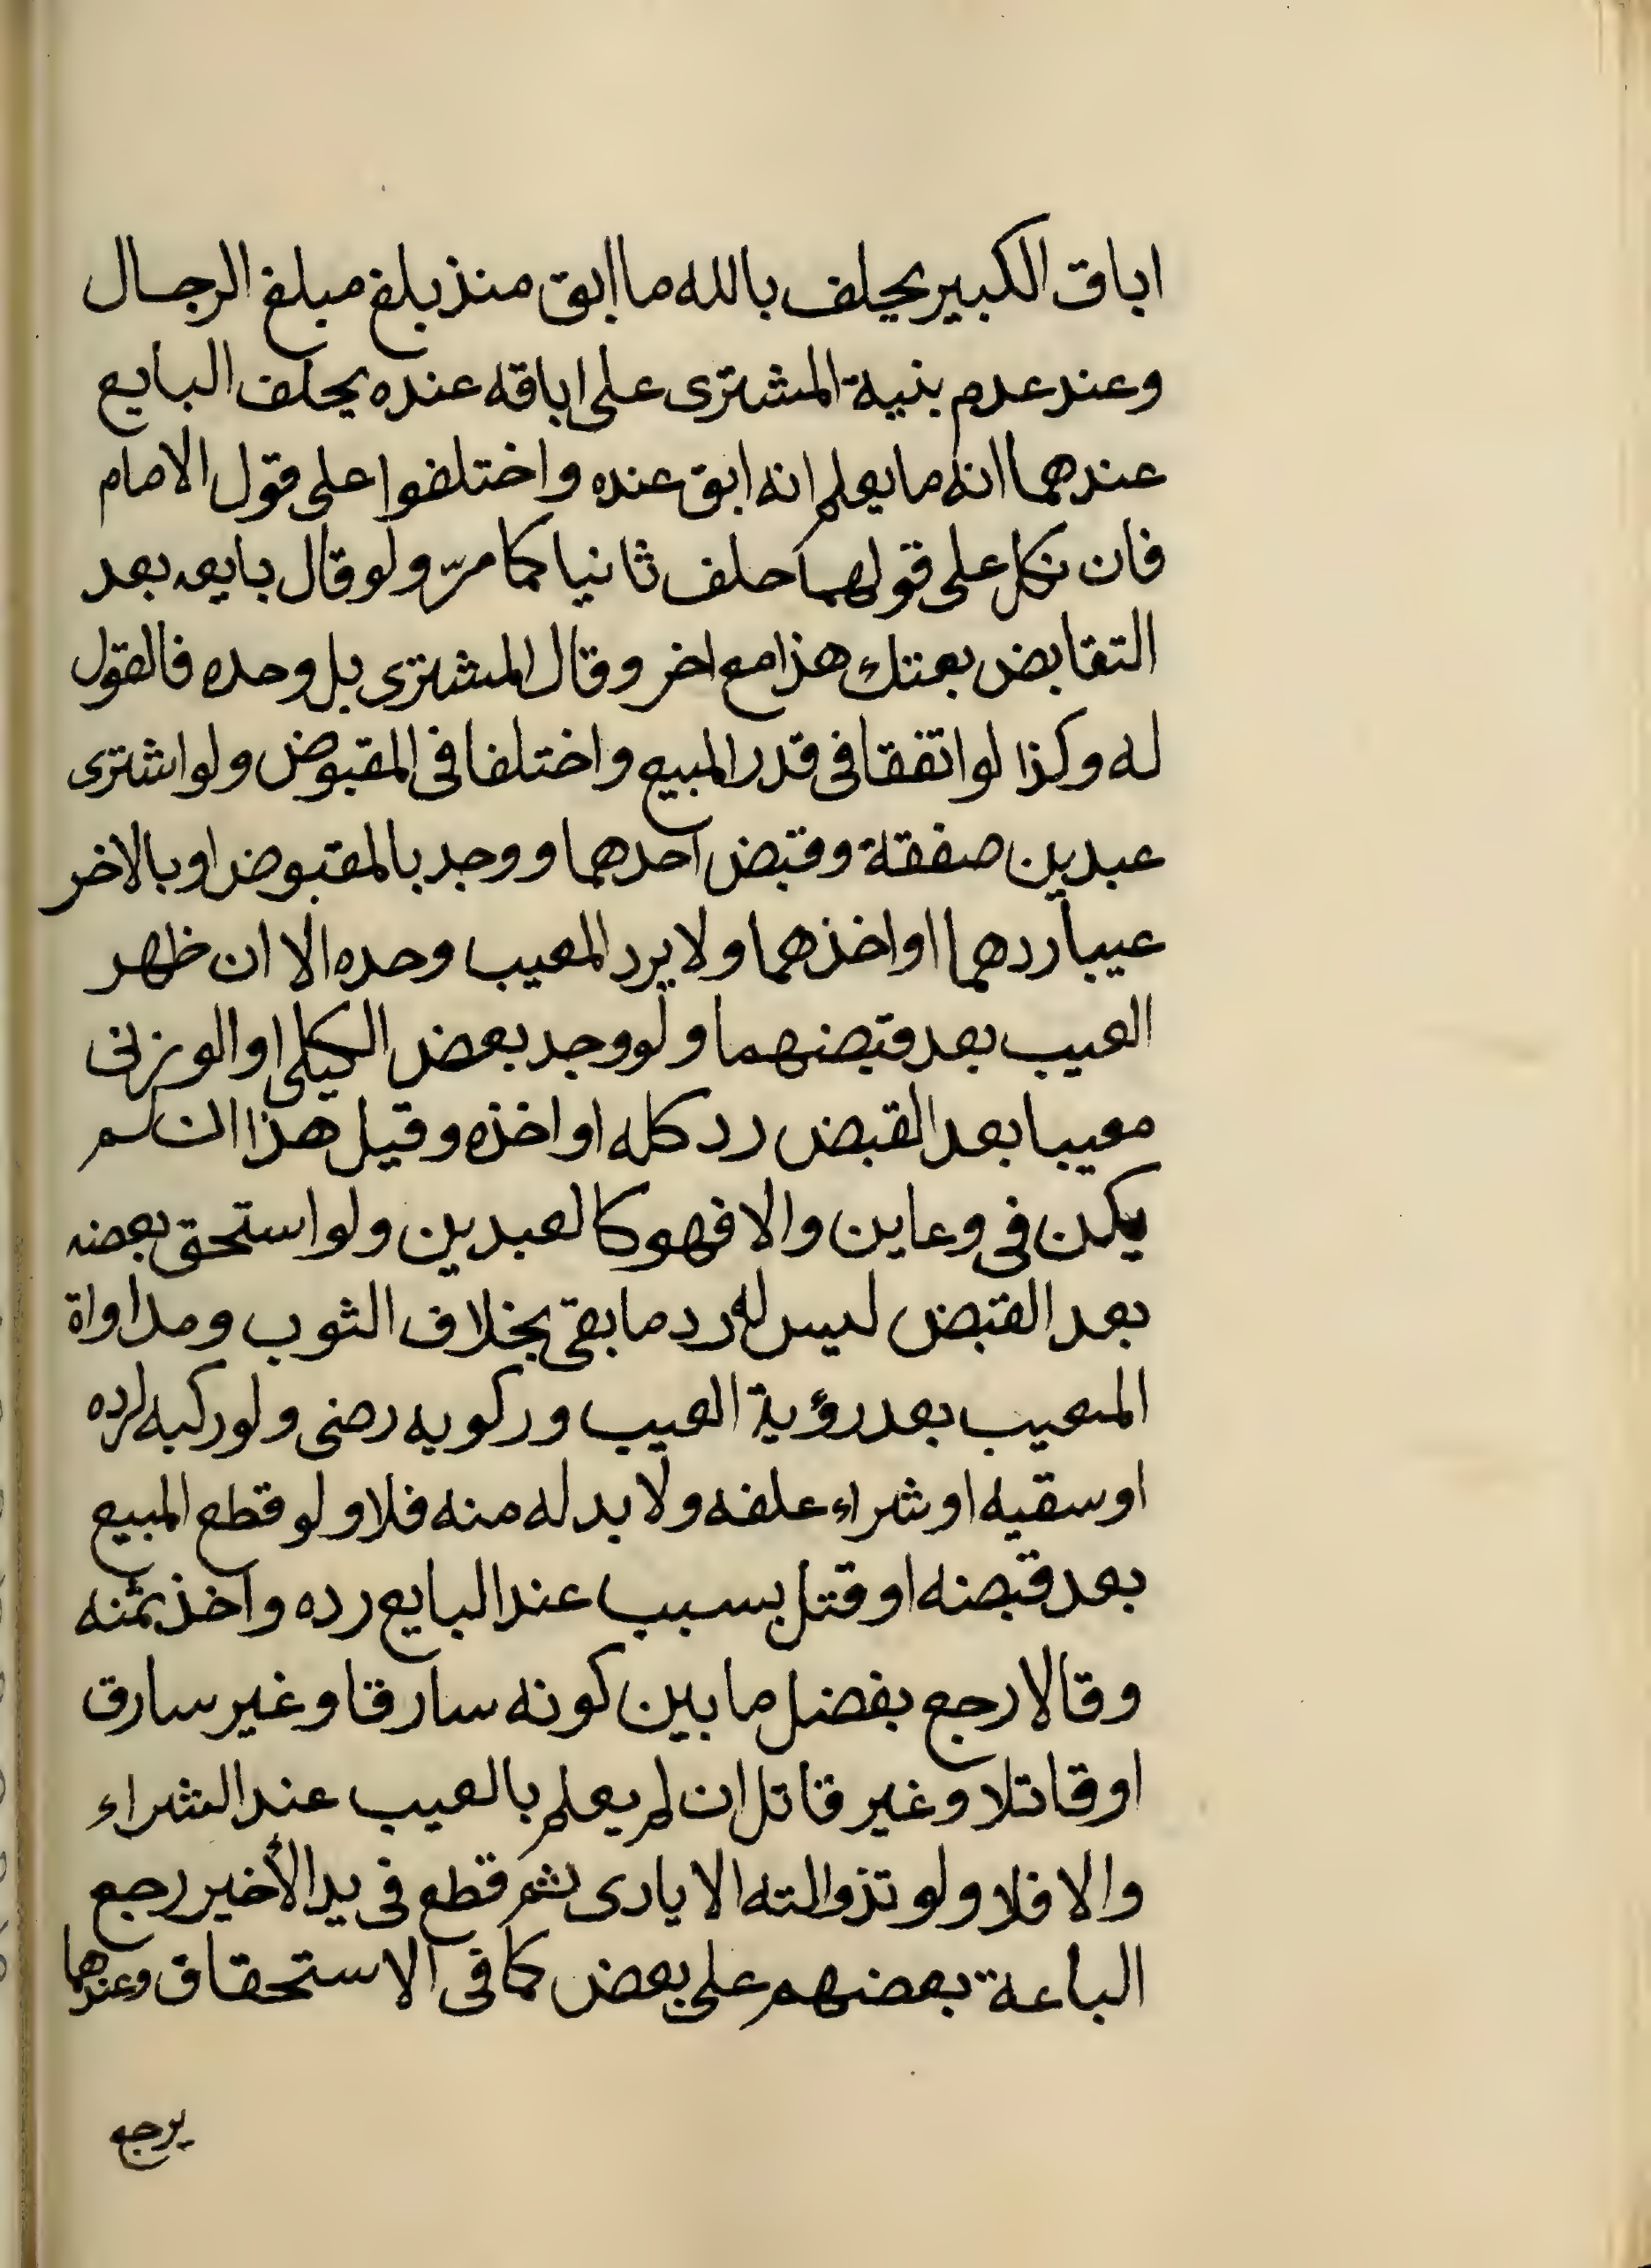 اباق الكبير يحلف بالله ما ابق منذ بلغ مبلغ الرجال
وعند عدم بنية المشترى على اباقه عنده يحلف البايع
عندهما انه ما يعلم انه ابق عنده واختلفوا على قول الامام
فان نكل على قولهما حلف ثانيا كما مرّ ولو قال بايعه بعد
التقابض بعتك هذا مع اخر وقال المشترى بل وحده فالقول
له وكذا لو اتفقا فى قدر المبيع واختلفا فى المقبوض ولو اشترى
عبدين صفقة وقبض احدهما ووجد بالمقبوض او بالاخر
عيبا ردهما او اخذهما ولا يرد المعيب وحده الا ان ظهر
العيب بعد قبضهما ولو وجد بعض الكيلى او الوزنى
معيبا بعد القبض رد كله او اخذه وقيل هذا ان لم
يكن فى وعاين والا فهو كالعبدين ولو استحق بعضه
بعد القبض ليس له رد ما بقى بخلاف الثوب ومداواة
المعيب بعد رؤية العيب وركوبه رضى ولو ركبه لرده
او سقيه او شراء علفه ولا بد له منه فلا ولو قطع المبيع
بعد قبضه او قتل بسبب عند البايع رده واخذ ثمنه
وقالا رجع بفضل ما بين كونه سارقا وغير سارق
او قاتلا وغير قاتل ان لم يعلم بالعيب عند الشراء
والا فلا ولو تذوالته الايادى ثم قطع فى يد الأخير رجع
الباعة بعضهم على بعض كما فى الاستحقاق وعندهما
يرجع